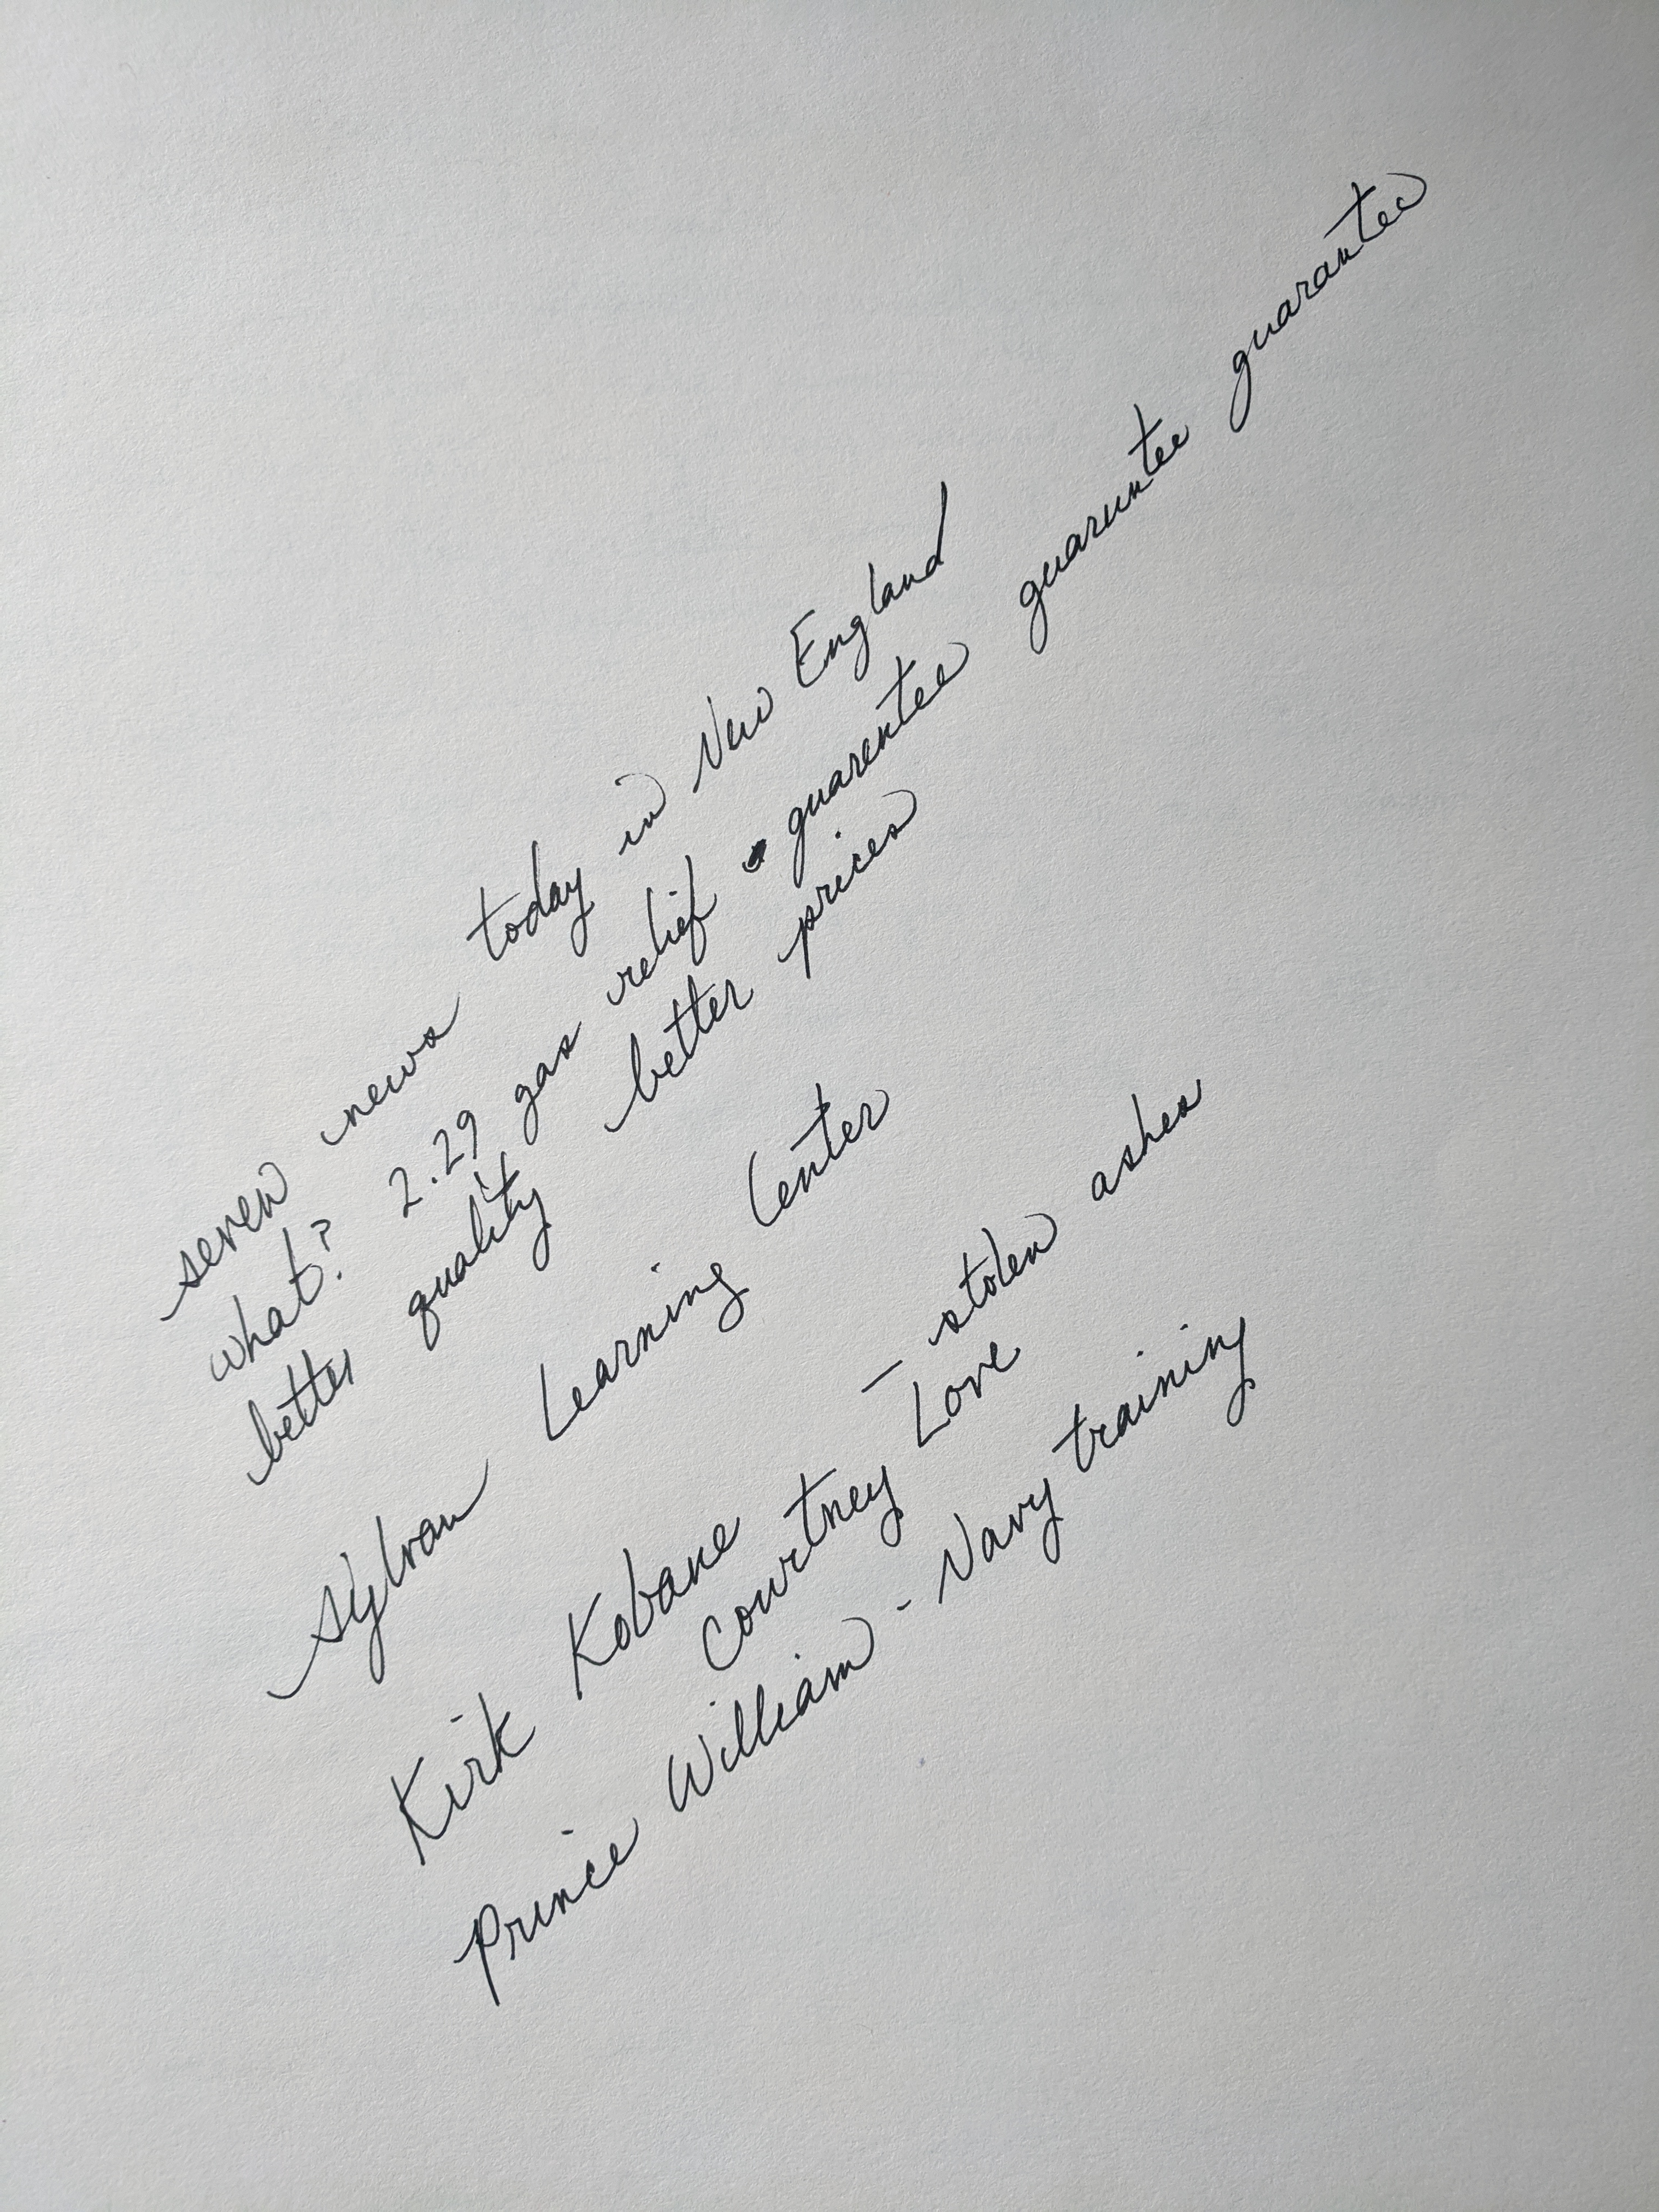 seven news today in New England
what? 2.29 gas relief guarentee guaruntee guarantee
better quality better prices
Sylvan Learning Center
Kirk Kobane — stolen ashes
Courtney Love
Prince William - Navy training